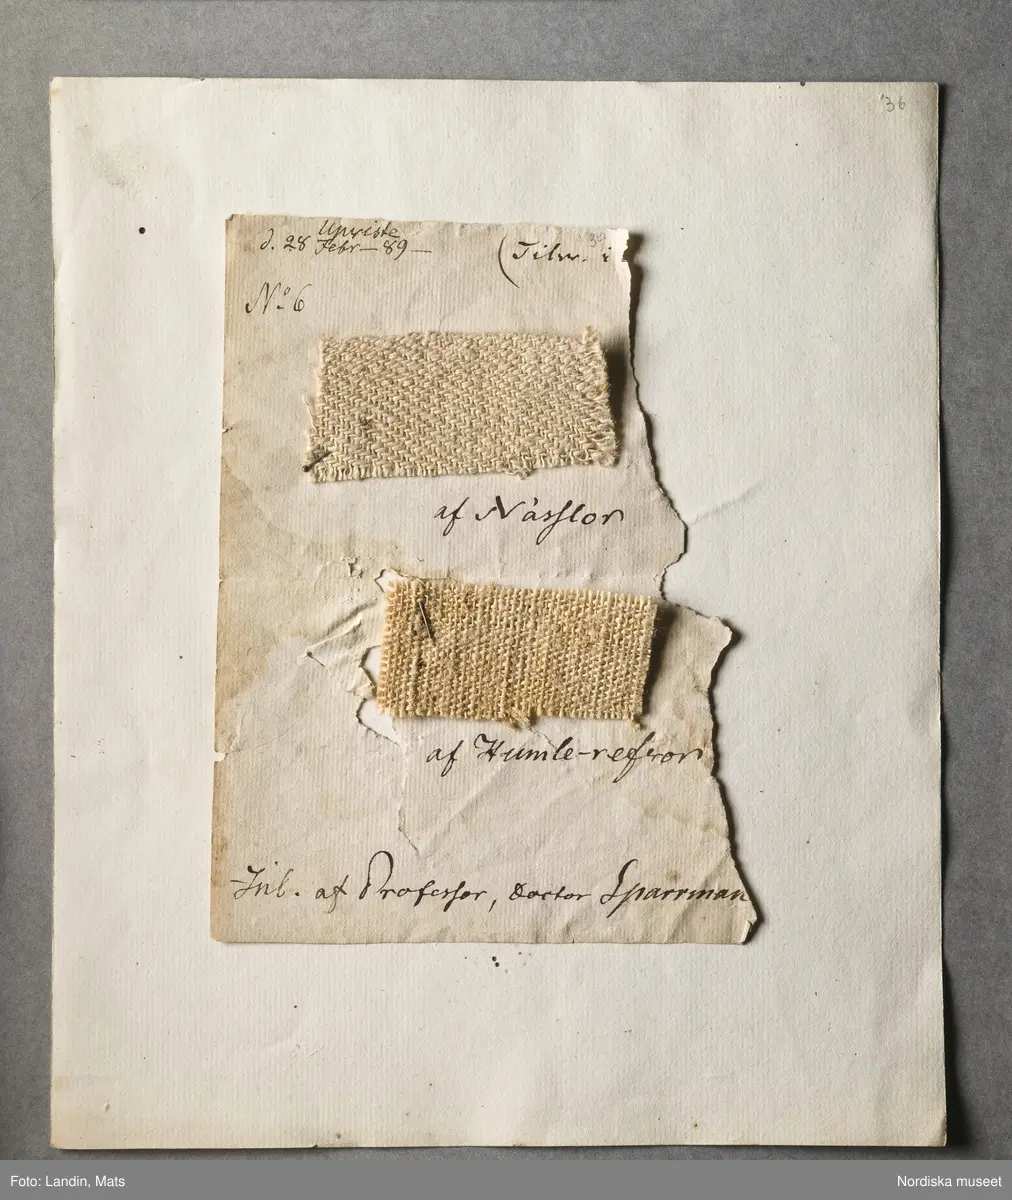 36
d. 28 Upviste Febr — 89 —
(Tilv. i
No 6
af Nässlor
af Humle-refvor
Inl. af Professor, Doctor Sparrman
Foto: Landin, Mats
Nordiska museet